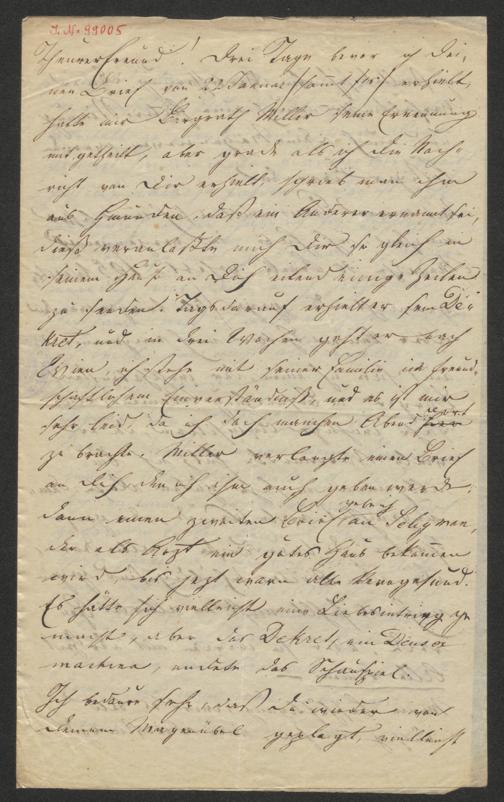 J. N. 99005
Theurer Freund! Drei Tage bevor ich Dei,
nen Brief von 22 Januar erhielt,
hatte mir Bergrath Miller seine Ernennung
mitgetheilt, aber grade als ich die Nach,
richt von Dir erhielt, schrieb man ihm
aus Gmunden, daß ein Anderer ernannt sei,
dieß veranlaßte mich Dir so gleich in
seinem Hause an Dich eilend einige Zeilen
zu senden. Tags darauf erhielt er sein De,
kret, und in drei Wochen geht er nach
Wien, ich stehe mit seiner Familie im freund,
schaftlichem Einverständniß, und es ist mir
sehr leid, da ich doch manchen Abend dort
zu brachte. Miller verlangte einen Brief
an Dich den ich ihm auch geben werde,
dann einen zweiten Brief an Seligman,
der als Arzt ein gutes Haus bekommen
wird, bis jezt waren alle kerngesund.
Es hätte sich vielleicht eine Liebesintrigue ge
macht, aber das Dekret, ein Deus ex
machina, endete das Schauspiel.
Ich bedaure sehr, daß Du wieder von
Deinem Magenübel geplagt, vielleicht